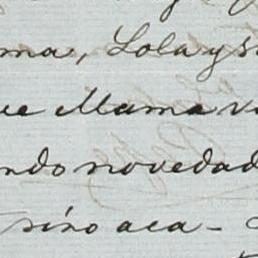 ma, Lola y s
ue Mama v
ndo novedad
sino aca-